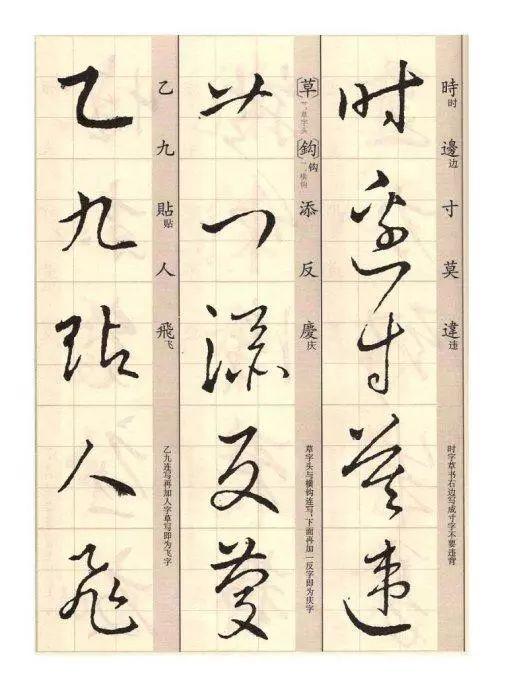 時时 邊边 寸 莫 違违
时字草书右边写成寸字不要违背
時邊寸莫違
〔草〕艹，草字头 〔鈎〕钩 乛，横钩 添 反 慶庆
草字头与横钩连写，下面再加一反字即为庆字
艹乛添反慶
乙 九 貼贴 人 飛飞
乙九连写再加人字草写即为飞字
乙九貼人飛